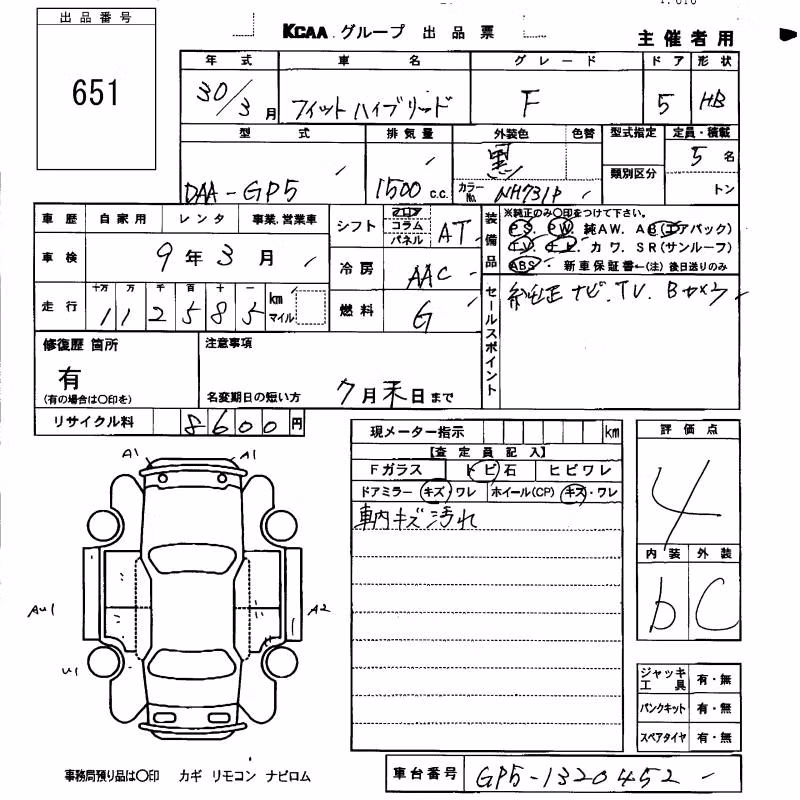 出品番号
651
KCAA グループ 出品票
主催者用
年式 車名 グレード ドア 形状
30/3月 フィットハイブリッド F 5 HB
型式 排気量 外装色 色替 型式指定 定員・積載
DAA-GP5 1500 c.c. 黒 カラーNo. NH731P 類別区分 5名 トン
車歴 自家用 レンタ 事業.営業車
車検 9年3月
走行 十万 万 千 百 十 一
112585 km マイル
シフト フロア コラム パネル AT
冷房 AAC
燃料 G
装備品 ※純正のみ○印をつけて下さい。
PS. PW. 純AW. AB(エアバック)
TV. ナビ. カワ. SR(サンルーフ)
ABS・ 新車保証書←(注)後日送りのみ
セールスポイント 純正ナビ.TV.Bカメラ
修復歴 箇所
有
(有の場合は○印を)
注意事項
名変期日の短い方 7月末日まで
リサイクル料 8600円
現メーター指示 km
【査定員記入】
Fガラス トビ石 ヒビワレ
ドアミラー キズ・ワレ ホイール(CP) キズ・ワレ
車内キズ汚れ
評価点
4
内装 外装
b C
A1 A1
AU1 A2
U1
ジャッキ工具 有・無
パンクキット 有・無
スペアタイヤ 有・無
事務局預り品は○印 カギ リモコン ナビロム
車台番号 GP5-1320452